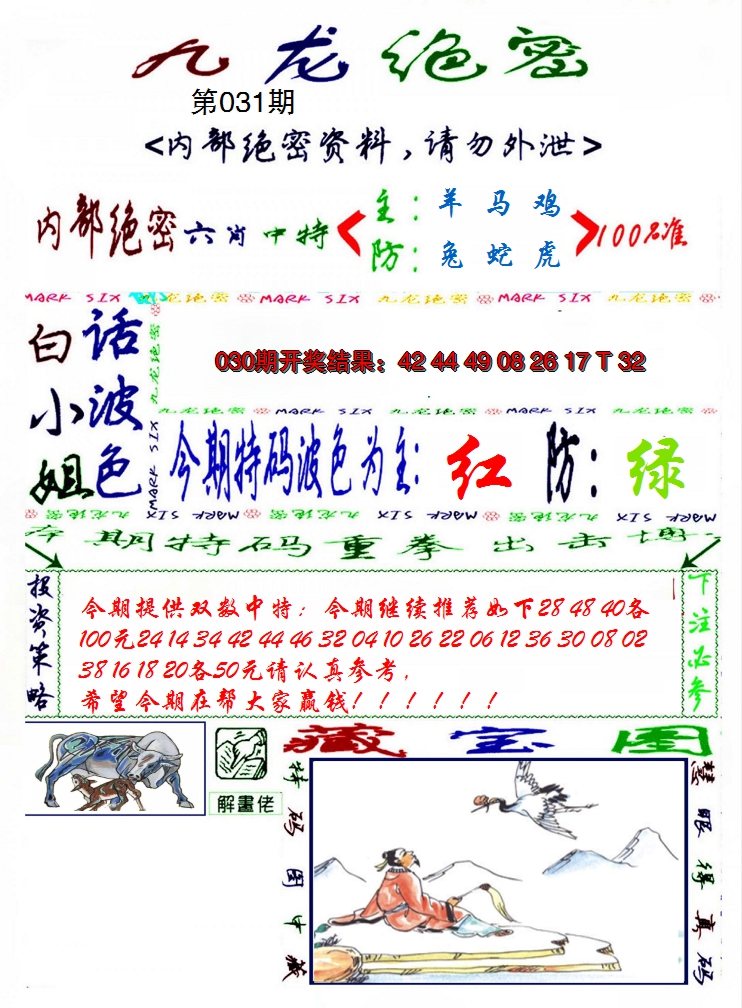 九龙绝密
第031期
<内部绝密资料,请勿外泄>
内部绝密六肖中特
主:羊 马 鸡
防:兔 蛇 虎
100%准
MARK SIX 九龙绝密 MARK SIX 九龙绝密 MARK SIX 九龙绝密
白小姐
话波色
九龙绝密 MARK SIX
030期开奖结果：42 44 49 08 26 17 T 32
九龙绝密 MARK SIX 九龙绝密 MARK SIX 九龙绝密
今期特码波色为主:红 防:绿
九龙绝密 MARK SIX 九龙绝密 MARK SIX 九龙绝密 MARK SIX
本期特码重拳出击博
投资策略
今期提供双数中特；今期继续推荐如下28 48 40各
100元24 14 34 42 44 46 32 04 10 26 22 06 12 36 30 08 02
38 16 18 20各50元请认真参考,
希望今期在帮大家赢钱！！！！！！
下注必参
藏宝图
解畫佬
特码图中藏
慧眼得真码